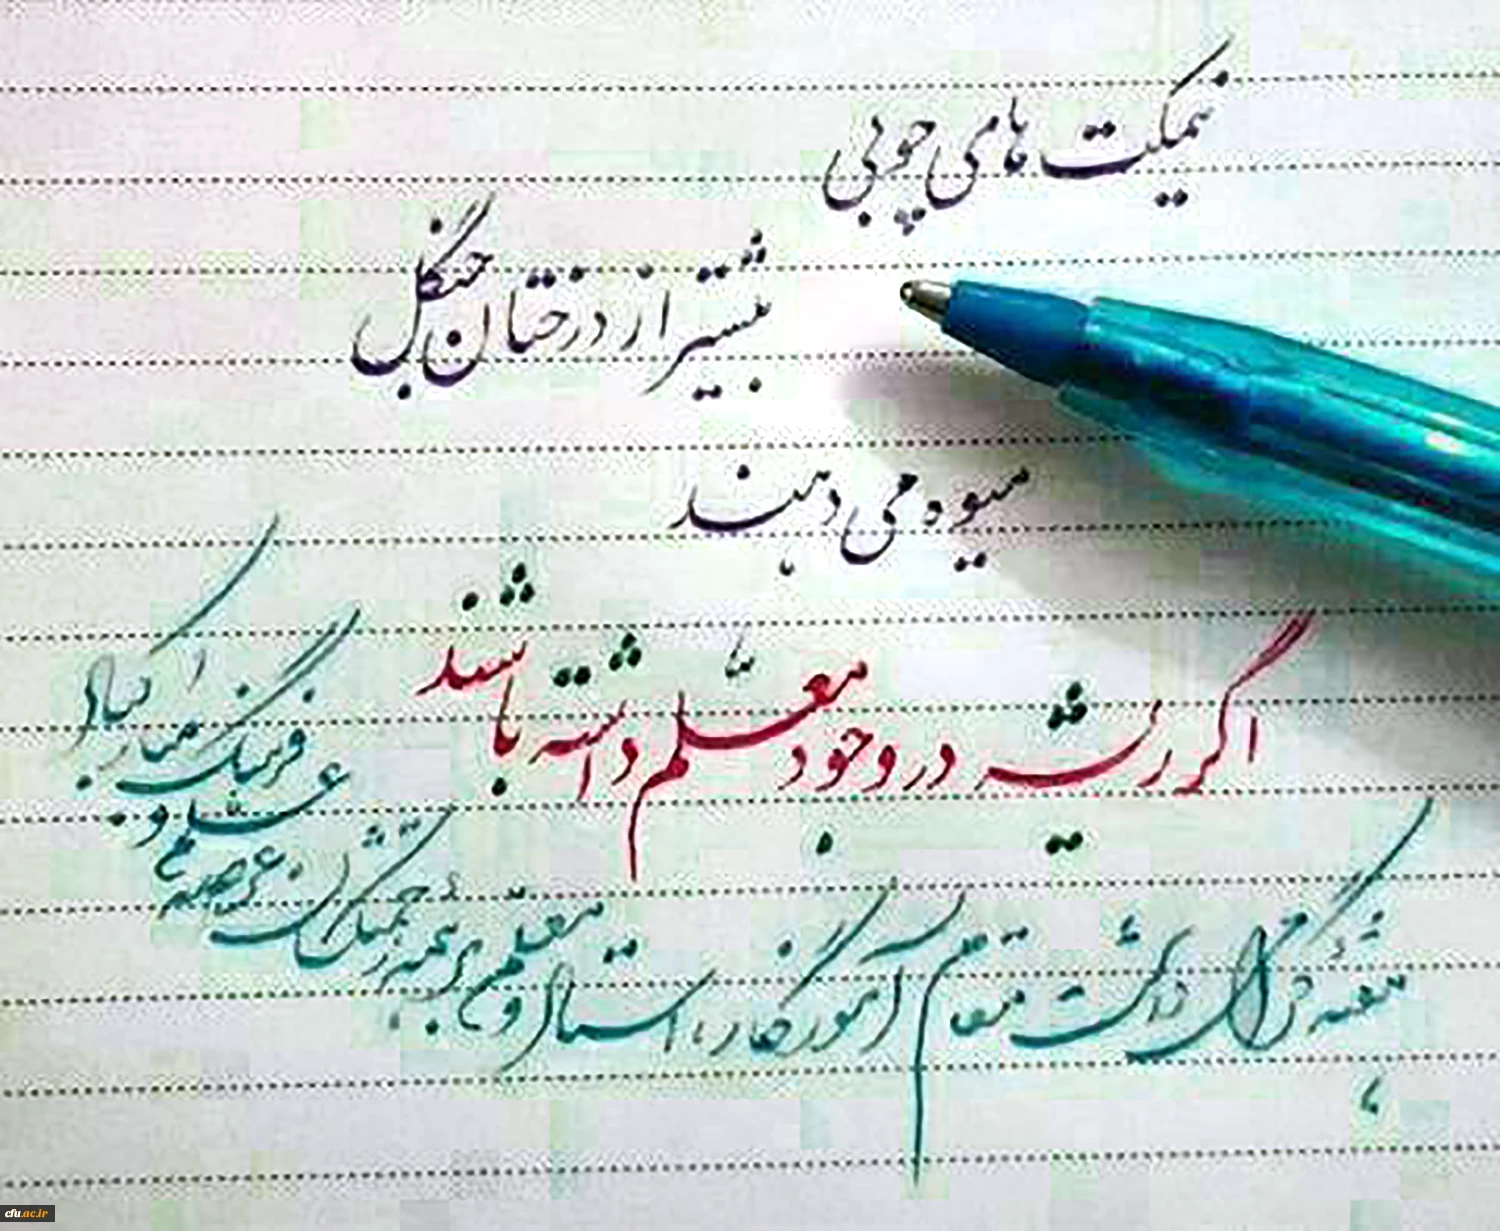 نیمکت های چوبی
بیشتر از درختان جنگل
میوه می دهند
اگر ریشه در وجود معلّم داشته باشند
هفتهٔ گرامی داشت مقام آموزگار، استاد و معلّم بر همه زحمتکشان عرصه علم و فرهنگ مبارکباد
cfu.ac.ir